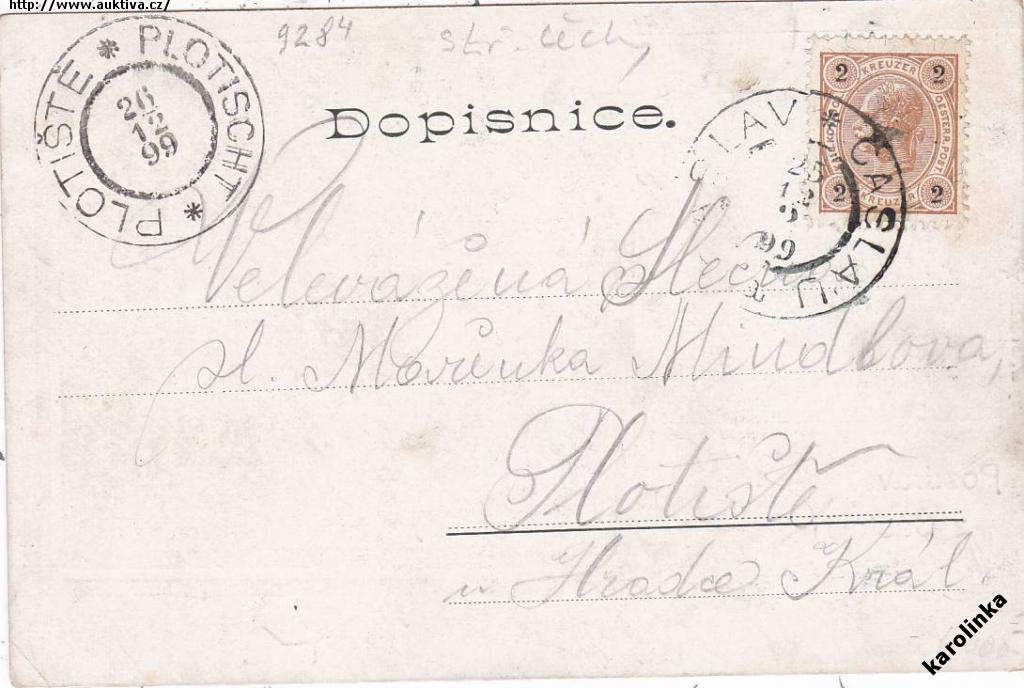 http://www.auktiva.cz/
9284 stř. Čechy
PLOTIŠTĚ * PLOTISCHT *
26
12
99
Dopisnice.
2 KREUZER 2
OESTERR. POST
2 KREUZER 2
ČÁSLAV * ČASLAU *
12
99
Velevážená Slečna
sl. Mařenka Mindlova,
Plotiště
u Hradce Král.
karolinka